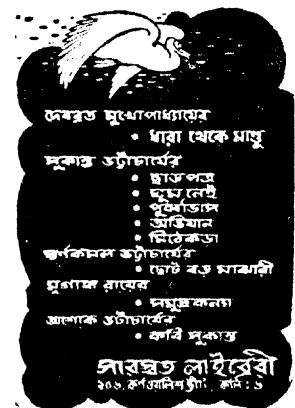 দেবব্রত মুখোপাধ্যায়ের
• ধারা থেকে মাণ্ডু
সুকান্ত ভট্টাচার্যের
• ছাড়পত্র
• ঘুম নেই
• পূর্বাভাস
• অভিযান
• মিঠেকড়া
স্বর্ণকমল ভট্টাচার্যের
• ছোট বড় মাঝারী
মৃগাঙ্ক রায়ের
• সমুদ্রকন্যা
অশোক ভট্টাচার্যের
• কবি সুকান্ত
সারস্বত লাইব্রেরী
২০৬, কর্ণওয়ালিশ স্ট্রীট, কলি: ৬